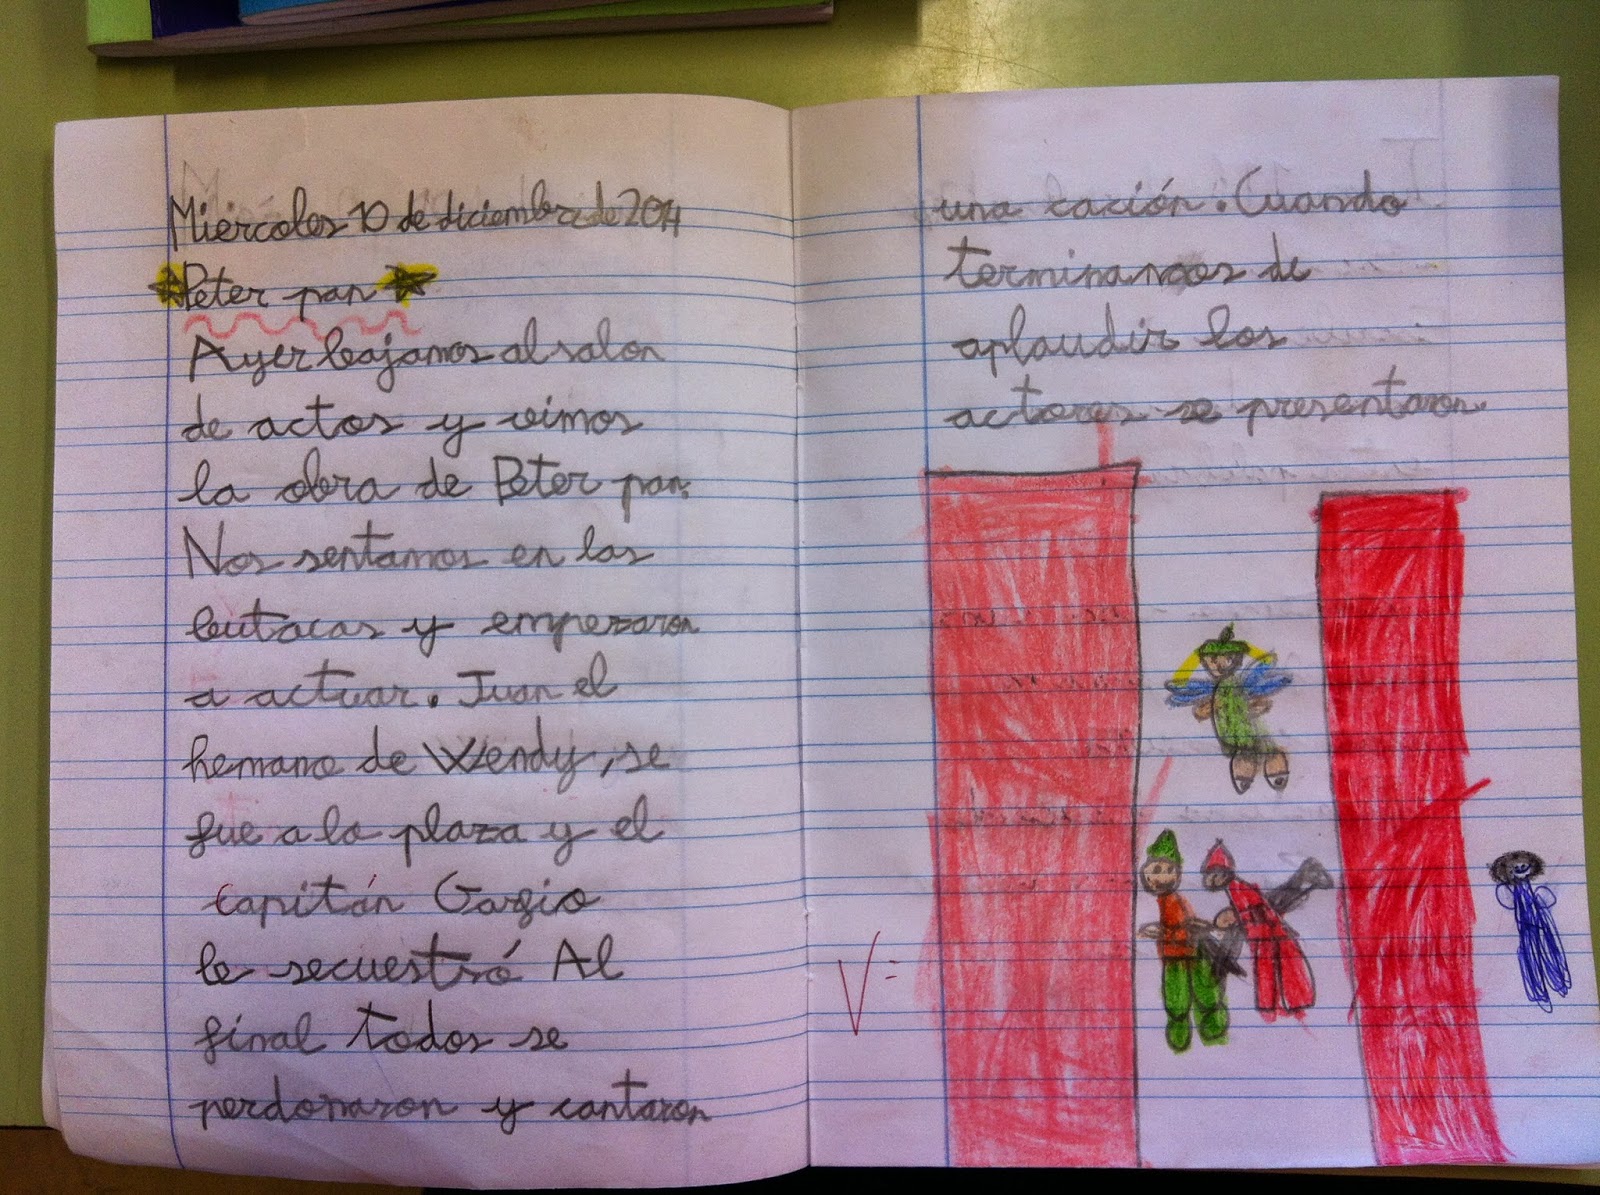 Miércoles 10 de diciembre de 2014
Peter pan
Ayer bajamos al salon
de actos y vimos
la obra de Peter pan.
Nos sentamos en las
butacas y empezaron
a actuar. Juan el
hemano de Wendy, se
fue a la plaza y el
capitán Gasgio
le secuestró Al
final todos se
perdonaron y cantaron
una cación. Cuando
terminamos de
aplaudir los
actores se presentaron.
V=